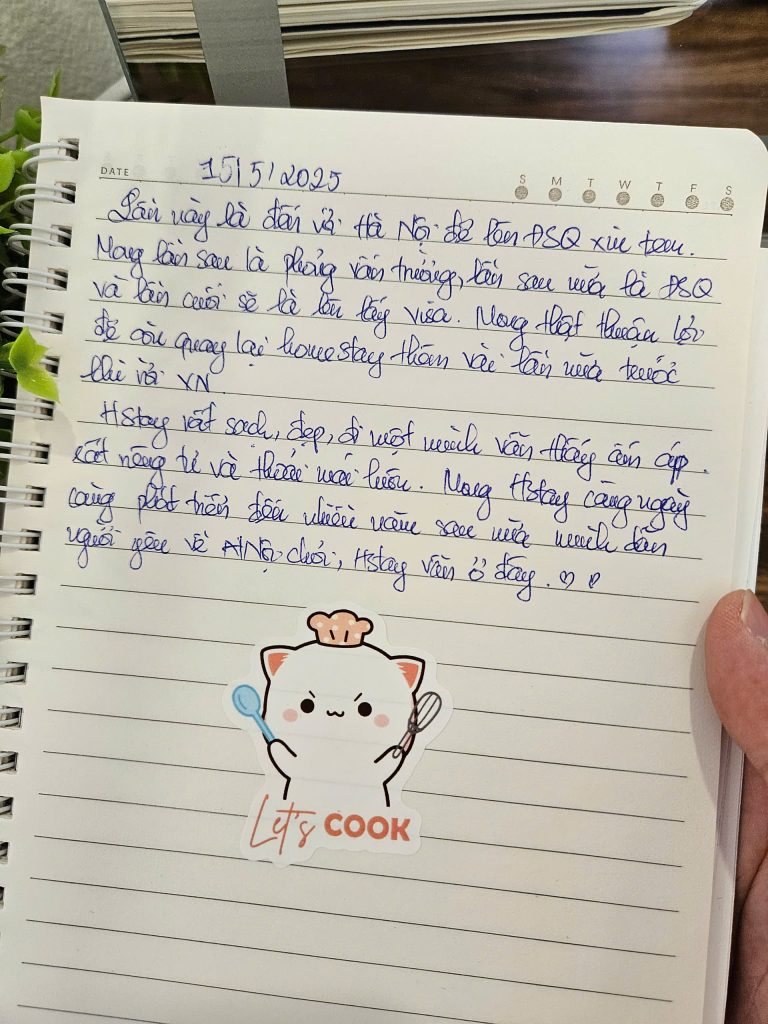 DATE 15/5/2025
S M T W T F S
Lần này là đến với Hà Nội để lên ĐSQ xin tem.
Mong lần sau là phỏng vấn trường, lần sau nữa là ĐSQ
và lần cuối sẽ là lên lấy visa. Mong thật thuận lợi
để còn quay lại homestay thêm vài lần nữa trước
khi rời VN
Hstay rất sạch, đẹp, đi một mình vẫn thấy ấm áp.
rất riêng tư và thoải mái luôn. Mong Hstay càng ngày
càng phát triển đến nhiều năm sau nữa mình dẫn
người yêu về HNội chơi, Hstay vẫn ở đây. ♡ ♡
Let's COOK